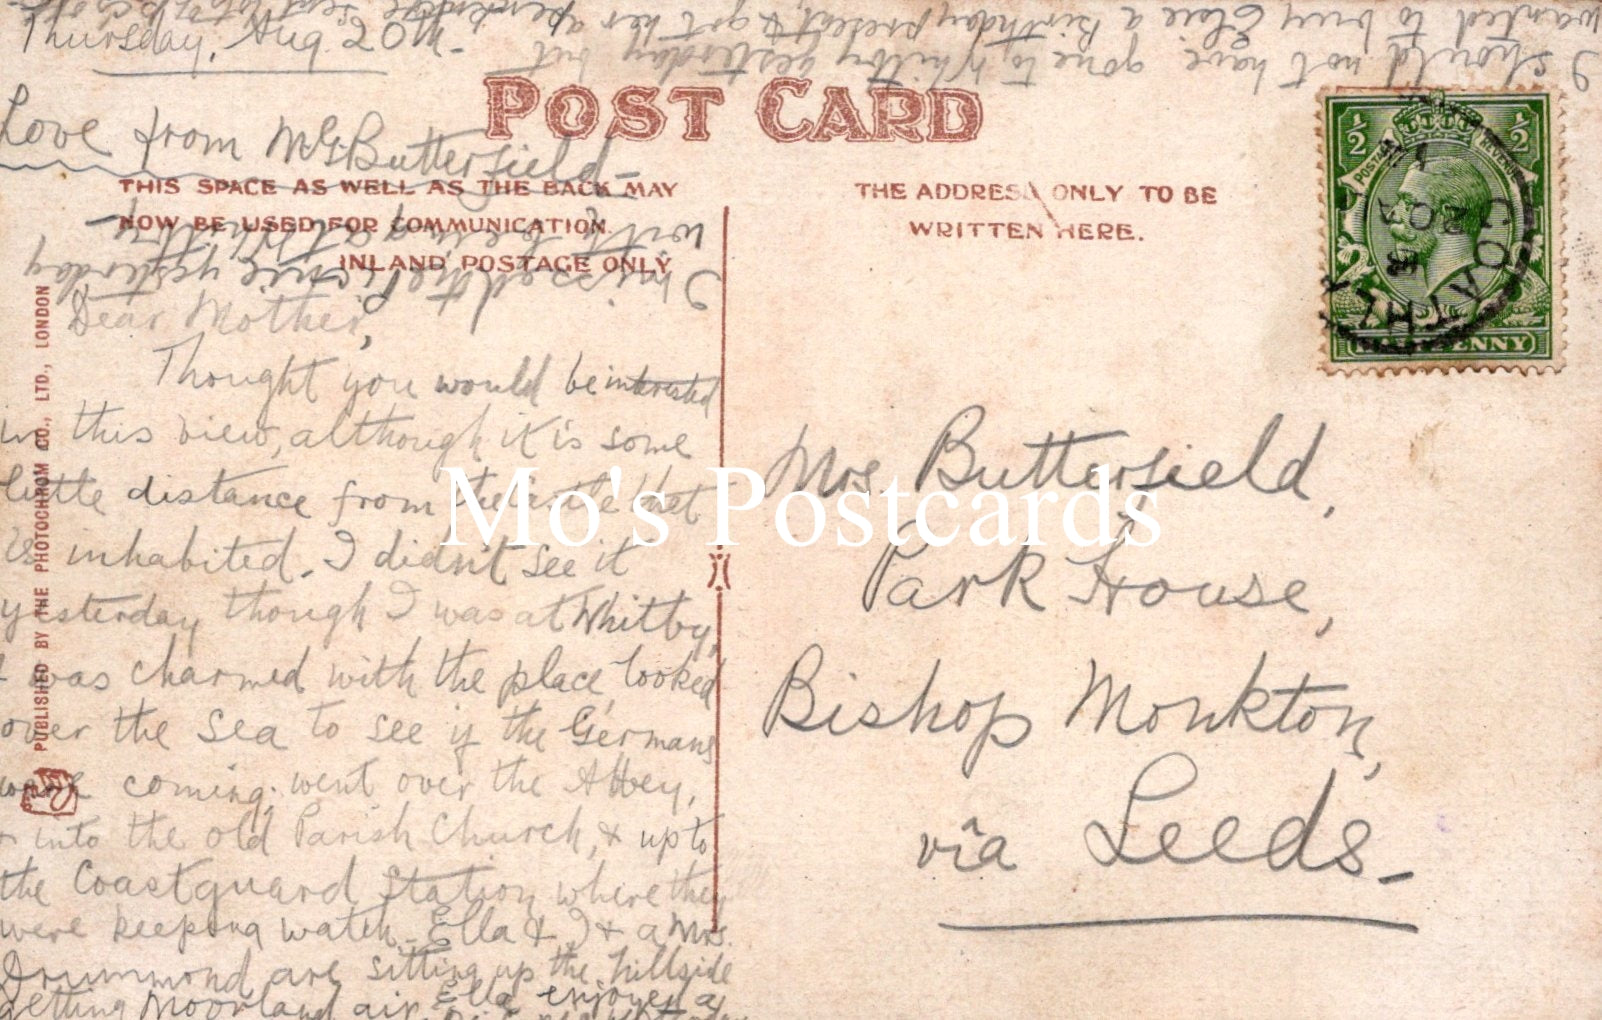 Thursday, Aug. 20th.
I should not have gone to Whitby yesterday but
wanted to buy Elsie a Birthday present, & got her a
Love from M.G. Butterfield
POST CARD
THIS SPACE AS WELL AS THE BACK MAY
NOW BE USED FOR COMMUNICATION.
INLAND POSTAGE ONLY
THE ADDRESS ONLY TO BE
WRITTEN HERE.
I missed the picnic yesterday
with being at Whitby
Dear Mother,
Thought you would be interested
in this view, although it is some
little distance from the castle that
is inhabited. I didn't see it
yesterday though I was at Whitby,
I was charmed with the place, looked
over the sea to see if the Germans
were coming; went over the Abbey,
& into the old Parish Church, & up to
the Coastguard Station where they
were keeping watch. Ella & I & a Mrs.
Drummond are sitting up the hillside
getting Moorland air. Ella enjoyed a
Mrs. Butterfield,
Park House,
Bishop Monkton,
via Leeds.
PUBLISHED BY THE PHOTOCHROM CO., LTD., LONDON
POSTAGE REVENUE
1/2 1/2
HALFPENNY
GOATHLA
20
Mo's Postcards